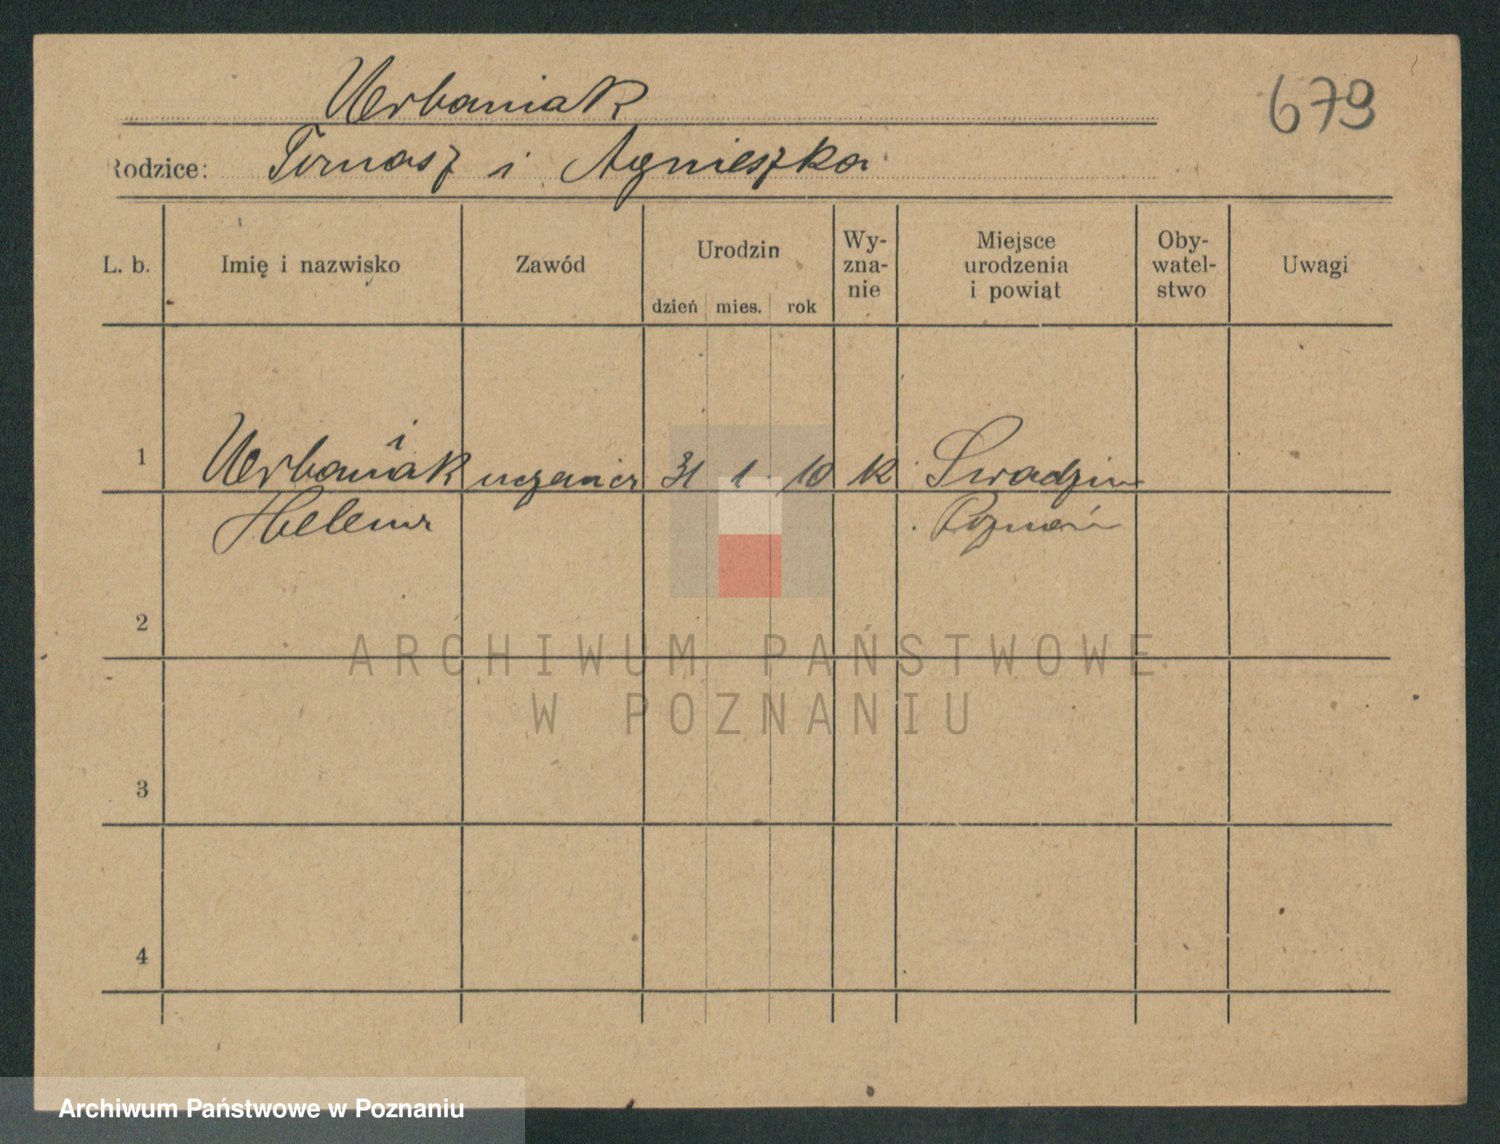 Urbaniak
679
Rodzice: Tomasz i Agnieszka
L. b. Imię i nazwisko Zawód Urodzin dzień mies. rok Wy-zna-nie Miejsce urodzenia i powiat Oby-watel-stwo Uwagi
1 Urbaniak uczenica 31 1 10 k Swadzim
Helena Poznań
2
3
4
ARCHIWUM PAŃSTWOWE
W POZNANIU
Archiwum Państwowe w Poznaniu